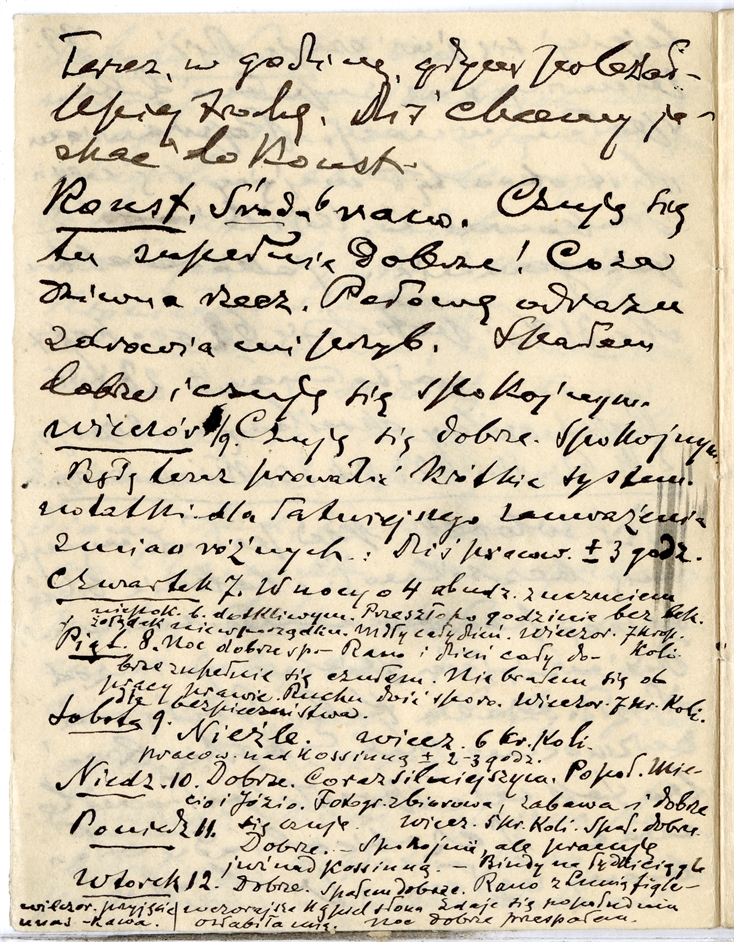 Teraz, w godzinę, gdyem pobrzad-
lepiej trochę. Dziś chcemy je-
chać do Konst.
Konst, Środa 6 rano. Czuję się
tu zupełnie dobrze! Coza
dziwna rzecz. Podowę odrazu
zdrowia mi przyb. Spałem
dobrze i czuję się spokojnym.
wieczór /9. Czuję się dobrze. Spokojnym
Będę teraz prowadzić krótkie system.
notatki dla łatwiejszego zauważenia
zmian różnych: Dziś pracow. ± 3 godz.
Czwartek 7. W nocy o 4 obudz. z uczuciem
niepok. b. dotkliwym. Przeszło po godzinie bez lek.
żołądek nie w porządku. Mdły cały dzień. Wieczor. 7 krop. Koli.
Piąt. 8. Noc dobrze sp- Rano i dzień cały do-
brze zupełnie się czułem. Nie brałem się do
pracy prawie. Ruchu dość sporo. Wieczor. 7 kr. Koli.
dla bezpieczeństwa.
Sobota 9. Nieźle. wiecz. 6 kr. Koli.
pracow. nad Kossinną ± 2-3 godz.
Niedz. 10. Dobrze. Coraz silniejszym. Popoł. Mie-
cio i Józio. Fotogr. zbiorowa, zabawa i dobrze
się czuję. wiecz. 5 kr. Koli. Spał. dobrze.
Poniedz 11. Dobrze. - Spokojnie, ale pracuję
już nad Kossinną. -
Wtorek 12. Dobrze. Spałem dobrze. Rano z Lunią figle-
wczorajsze słońca zdaje się popołudniu
osłabiła mię. Noc dobrze przespałem.
wieczor. przyjście
u nas - Kawa.